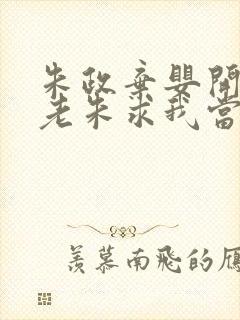 朱政棄嬰開
老朱求我當
羨慕南飛的雁